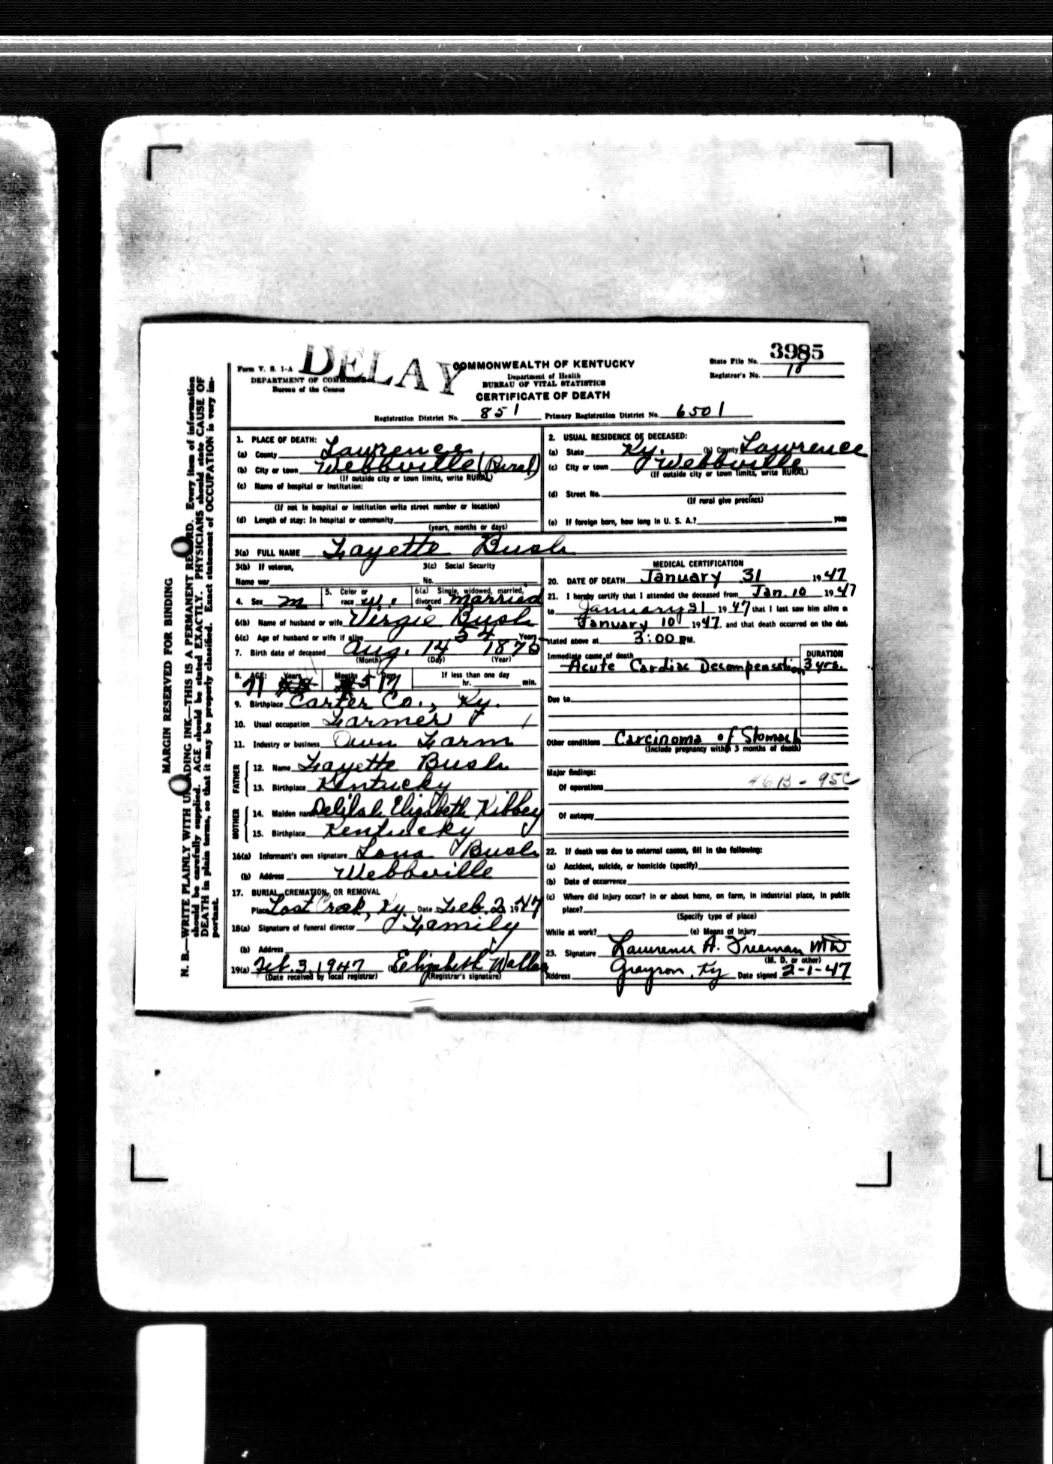 DELAY
Form V. S. 1-A
DEPARTMENT OF COMMERCE
Bureau of the Census
COMMONWEALTH OF KENTUCKY
Department of Health
BUREAU OF VITAL STATISTICS
CERTIFICATE OF DEATH
State File No. 3985
Registrar's No. 18
Registration District No. 851 Primary Registration District No. 6501
MARGIN RESERVED FOR BINDING
N. B.—WRITE PLAINLY WITH UNFADING INK—THIS IS A PERMANENT RECORD. Every item of information
should be carefully supplied. AGE should be stated EXACTLY. PHYSICIANS should state CAUSE OF
DEATH in plain terms, so that it may be properly classified. Exact statement of OCCUPATION is very im-
portant.
1. PLACE OF DEATH:
(a) County Lawrence
(b) City or town Webbville (Rural)
(If outside city or town limits, write RURAL)
(c) Name of hospital or institution:
(If not in hospital or institution write street number or location)
(d) Length of stay: In hospital or community
(years, months or days)
2. USUAL RESIDENCE OF DECEASED:
(a) State Ky. (b) County Lawrence
(c) City or town Webbville
(If outside city or town limits, write RURAL)
(d) Street No.
(If rural give precinct)
(e) If foreign born, how long in U. S. A.? years
3(a) FULL NAME Fayette Bush
3(b) If veteran, 3(c) Social Security
Name war No.
4. Sex M 5. Color or race W. 6(a) Single, widowed, married, divorced Married
6(b) Name of husband or wife Virgie Bush
6(c) Age of husband or wife if alive 54 Years
7. Birth date of deceased Aug. 14 1875
(Month) (Day) (Year)
8. AGE: Years Months Days If less than one day
71 5 17 hr. min.
9. Birthplace Carter Co., Ky.
10. Usual occupation Farmer
11. Industry or business Own Farm
FATHER
12. Name Fayette Bush
13. Birthplace Kentucky
MOTHER
14. Maiden name Delilah Elizabeth Kibbey
15. Birthplace Kentucky
16(a) Informant's own signature Lona Bush
(b) Address Webbville
17. BURIAL, CREMATION, OR REMOVAL
Place Lost Creek, Ky. Date Feb. 2 1947
18(a) Signature of funeral director Family
(b) Address
19(a) Feb. 3, 1947 Elizabeth
(Date received by local registrar) (Registrar's signature)
MEDICAL CERTIFICATION
20. DATE OF DEATH January 31 1947
21. I hereby certify that I attended the deceased from Jan. 10 1947
to January 31 1947 that I last saw him alive on
January 10 1947 and that death occurred on the date
stated above at 3:00 P.M.
Immediate cause of death DURATION
Acute Cardiac Decompensation 3 yrs.
Due to
Other conditions Carcinoma of Stomach
(Include pregnancy within 3 months of death)
Major findings:
46B - 95C
Of operations
Of autopsy
22. If death was due to external causes, fill in the following:
(a) Accident, suicide, or homicide (specify)
(b) Date of occurrence
(c) Where did injury occur? In or about home, on farm, in industrial place, in public
place?
(Specify type of place)
While at work? (e) Means of injury
23. Signature Lawrence A. Freeman MD
(M. D. or other)
Address Grayson, Ky Date signed 2-1-47